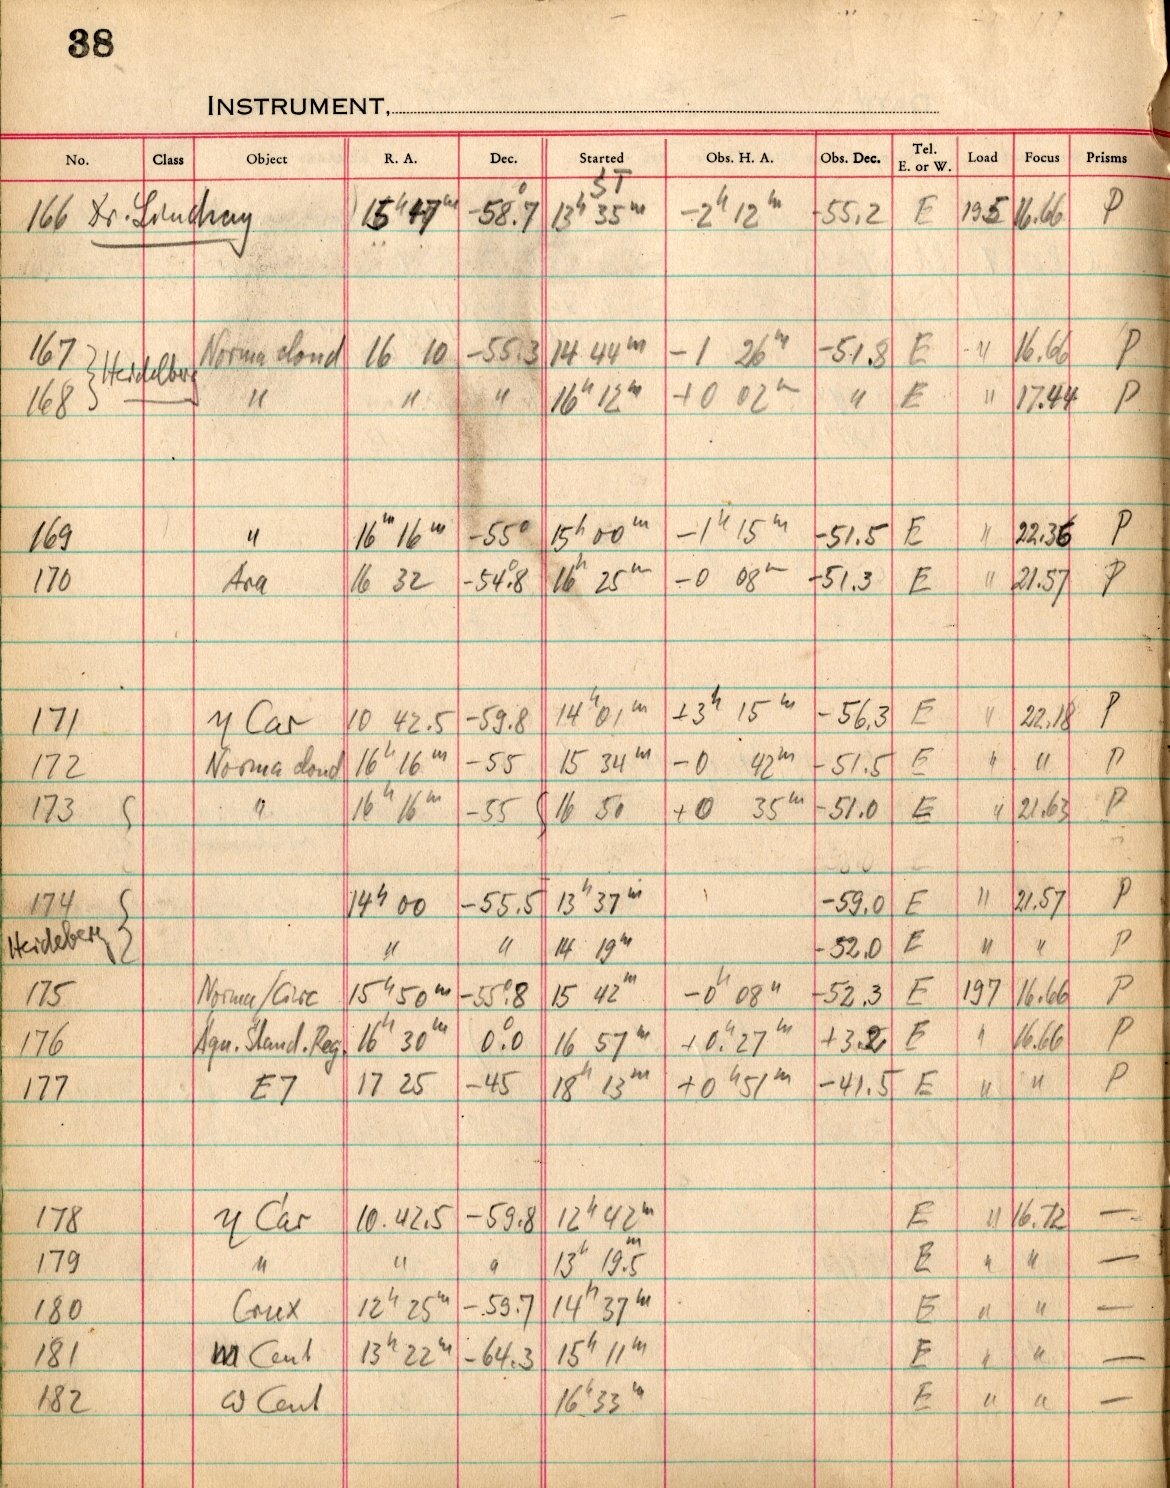 38
INSTRUMENT,
No. Class Object R. A. Dec. Started Obs. H. A. Obs. Dec. Tel. E. or W. Load Focus Prisms
ST
166 Dr. Lindsay 15h 47m -58.°7 13h 35m -2h 12m -55.2 E 195 16.66 P
167 Norma cloud 16 10 -55.3 14 44m -1 26m -51.8 E " 16.66 P
Heidelberg
168 " " " 16h 12m +0 02m " E " 17.44 P
169 " 16m 16m -55° 15h 00m -1h 15m -51.5 E " 22.36 P
170 Ara 16 32 -54.°8 16h 25m -0 08m -51.3 E " 21.57 P
171 η Car 10 42.5 -59.8 14h 01m +3h 15m -56.3 E " 22.18 P
172 Norma cloud 16h 16m -55 15 34m -0 42m -51.5 E " " P
173 { " 16h 16m -55 { 16 50 +0 35m -51.0 E " 21.63 P
174 14h 00 -55.5 13h 37m -59.0 E " 21.57 P
Heideberg " " 14 19m -52.0 E " " P
175 Norma/Circ 15h 50m -55.°8 15 42m -0h 08m -52.3 E 197 16.66 P
176 Aqu. Stand. Reg. 16h 30m 0.°0 16 57m +0.h 27m +3.2 E " 16.66 P
177 E7 17 25 -45 18h 13m +0h 51m -41.5 E " " P
178 η Car 10.42.5 -59.8 12h 42m E " 16.72 —
179 " " " 13h 19.5m E " " —
180 Crux 12h 25m -59.7 14h 37m E " " —
181 m Cent 13h 22m -64.3 15h 11m E " " —
182 ω Cent 16h 33m E " " —